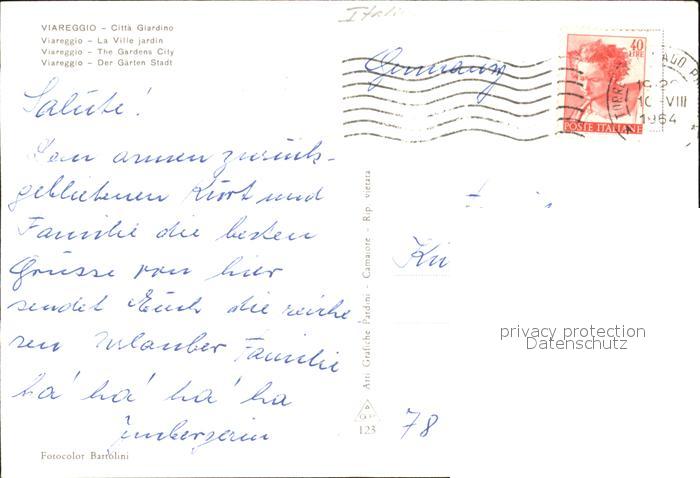 VIAREGGIO - Città Giardino
Viareggio - La Ville jardin
Viareggio - The Gardens City
Viareggio - Der Gärten Stadt
Italie
Germany
40
LIRE
POSTE ITALIANE
10-VIII
1964
Salute!
Den armen zurück-
gebliebenen Kurt und
Familie die besten
Grüsse von hier
sendet Euch die reiche
ren Urlauber Familie
ha' ha' ha' ha
Arti Grafiche Pardini - Camaiore - Rip. vietata
123
Fotocolor Bartolini
78
privacy protection
Datenschutz